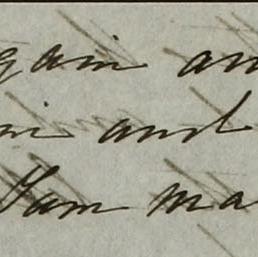 gain an
in and
Yam ma